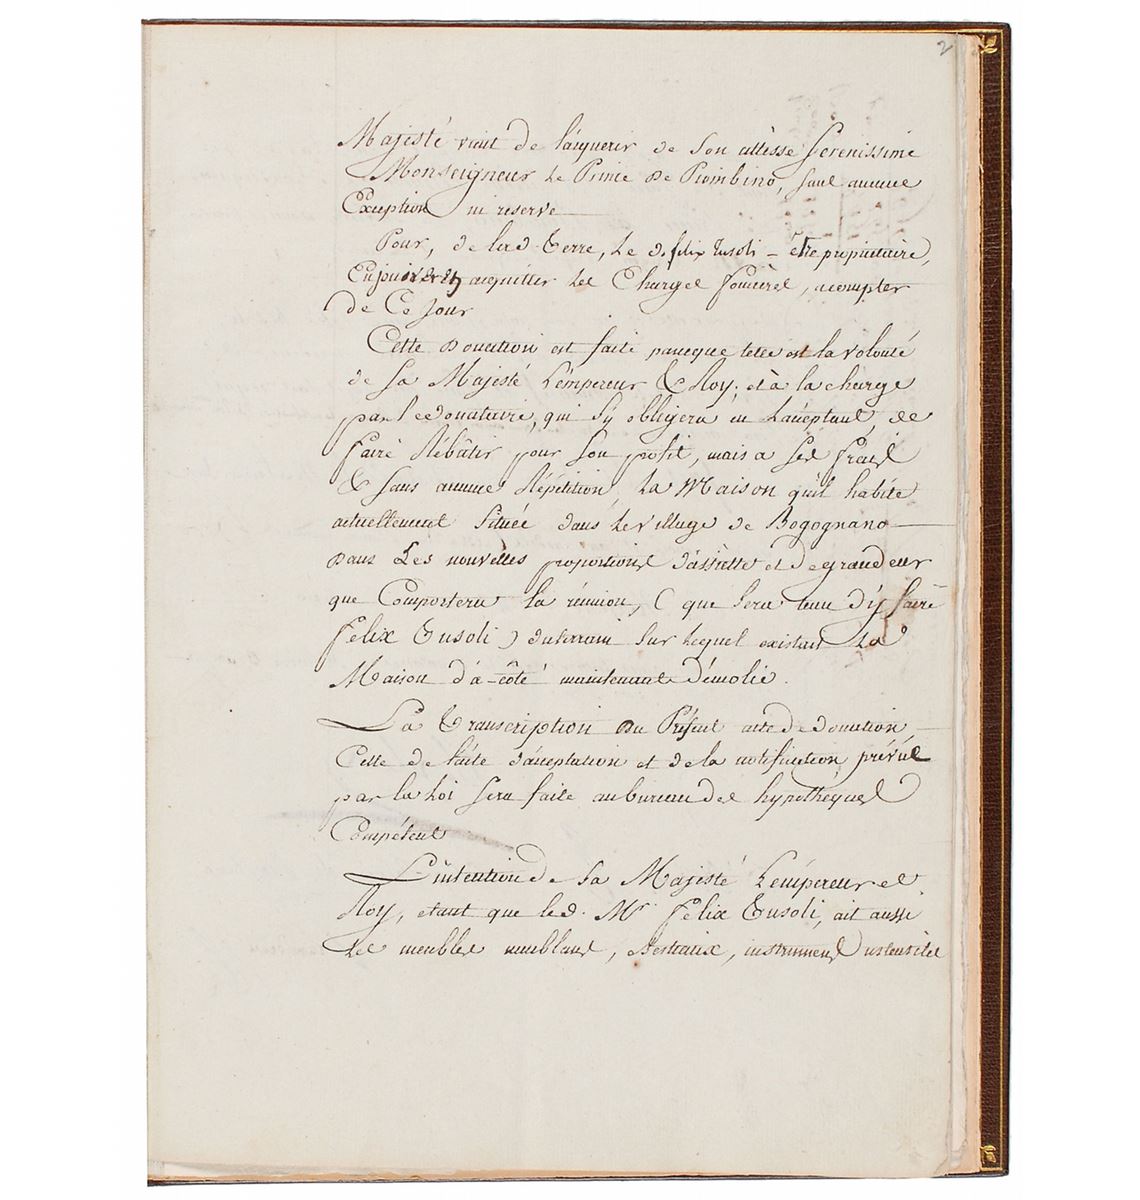 2
Majesté vient de l'acquerir de Son altesse Serenissime
Monseigneur Le Prince De Piombino, sauf aucune
Exception ni reserve
Pour, de lad. Terre, Le d. felix Tusoli - être propriétaire,
En jouir et en acquitter Les Charges foncières, acompter
de Ce Jour
Cette Donation est faite parceque telle est la volonté
de Sa Majesté L'Empereur & Roy; et à la charge
par le donataire, qui s'y obligera en L'acceptant, de
faire Rébâtir pour son profit, mais a Ses fraix
& sans aucune Répétition, La Maison qu'il habite
actuellement Située dans Le village de Bogognano
Dans Les nouvelles proportions d'assiette et De grandeur
que Comportera la réunion, ( que Sera tenu d'y faire
Felix Tusoli ) du terrain Sur Lequel existait La
Maison d'à-côté maintenant Démolie.
La Transcription Du Présent acte De donation
Celle de l'acte d'acceptation et de la notification prévue
par la Loi sera faite au bureau des hypothèques
Compétent
L'intention de Sa Majesté L'empereur et
Roy, etant que led. Mr. Felix Tusoli, ait aussi
Les meubles meublans, Bestiaux, instrumens ustensiles